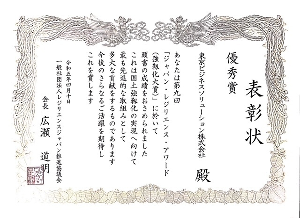 表彰状
優秀賞
東京ビジネスソリューション株式会社
殿
あなたは第九回
「ジャパン・レジリエンス・アワード
(強靭化大賞)」に於いて
頭書の成績をおさめられました
これは国土強靭化の実現へ向けて
最も先進的な取組みとして
多大な貢献をするものであります
今後のさらなるご活躍を期待し
これを賞します
令和五年四月十日
一般社団法人レジリエンスジャパン推進協議会
会長 広瀬 道明